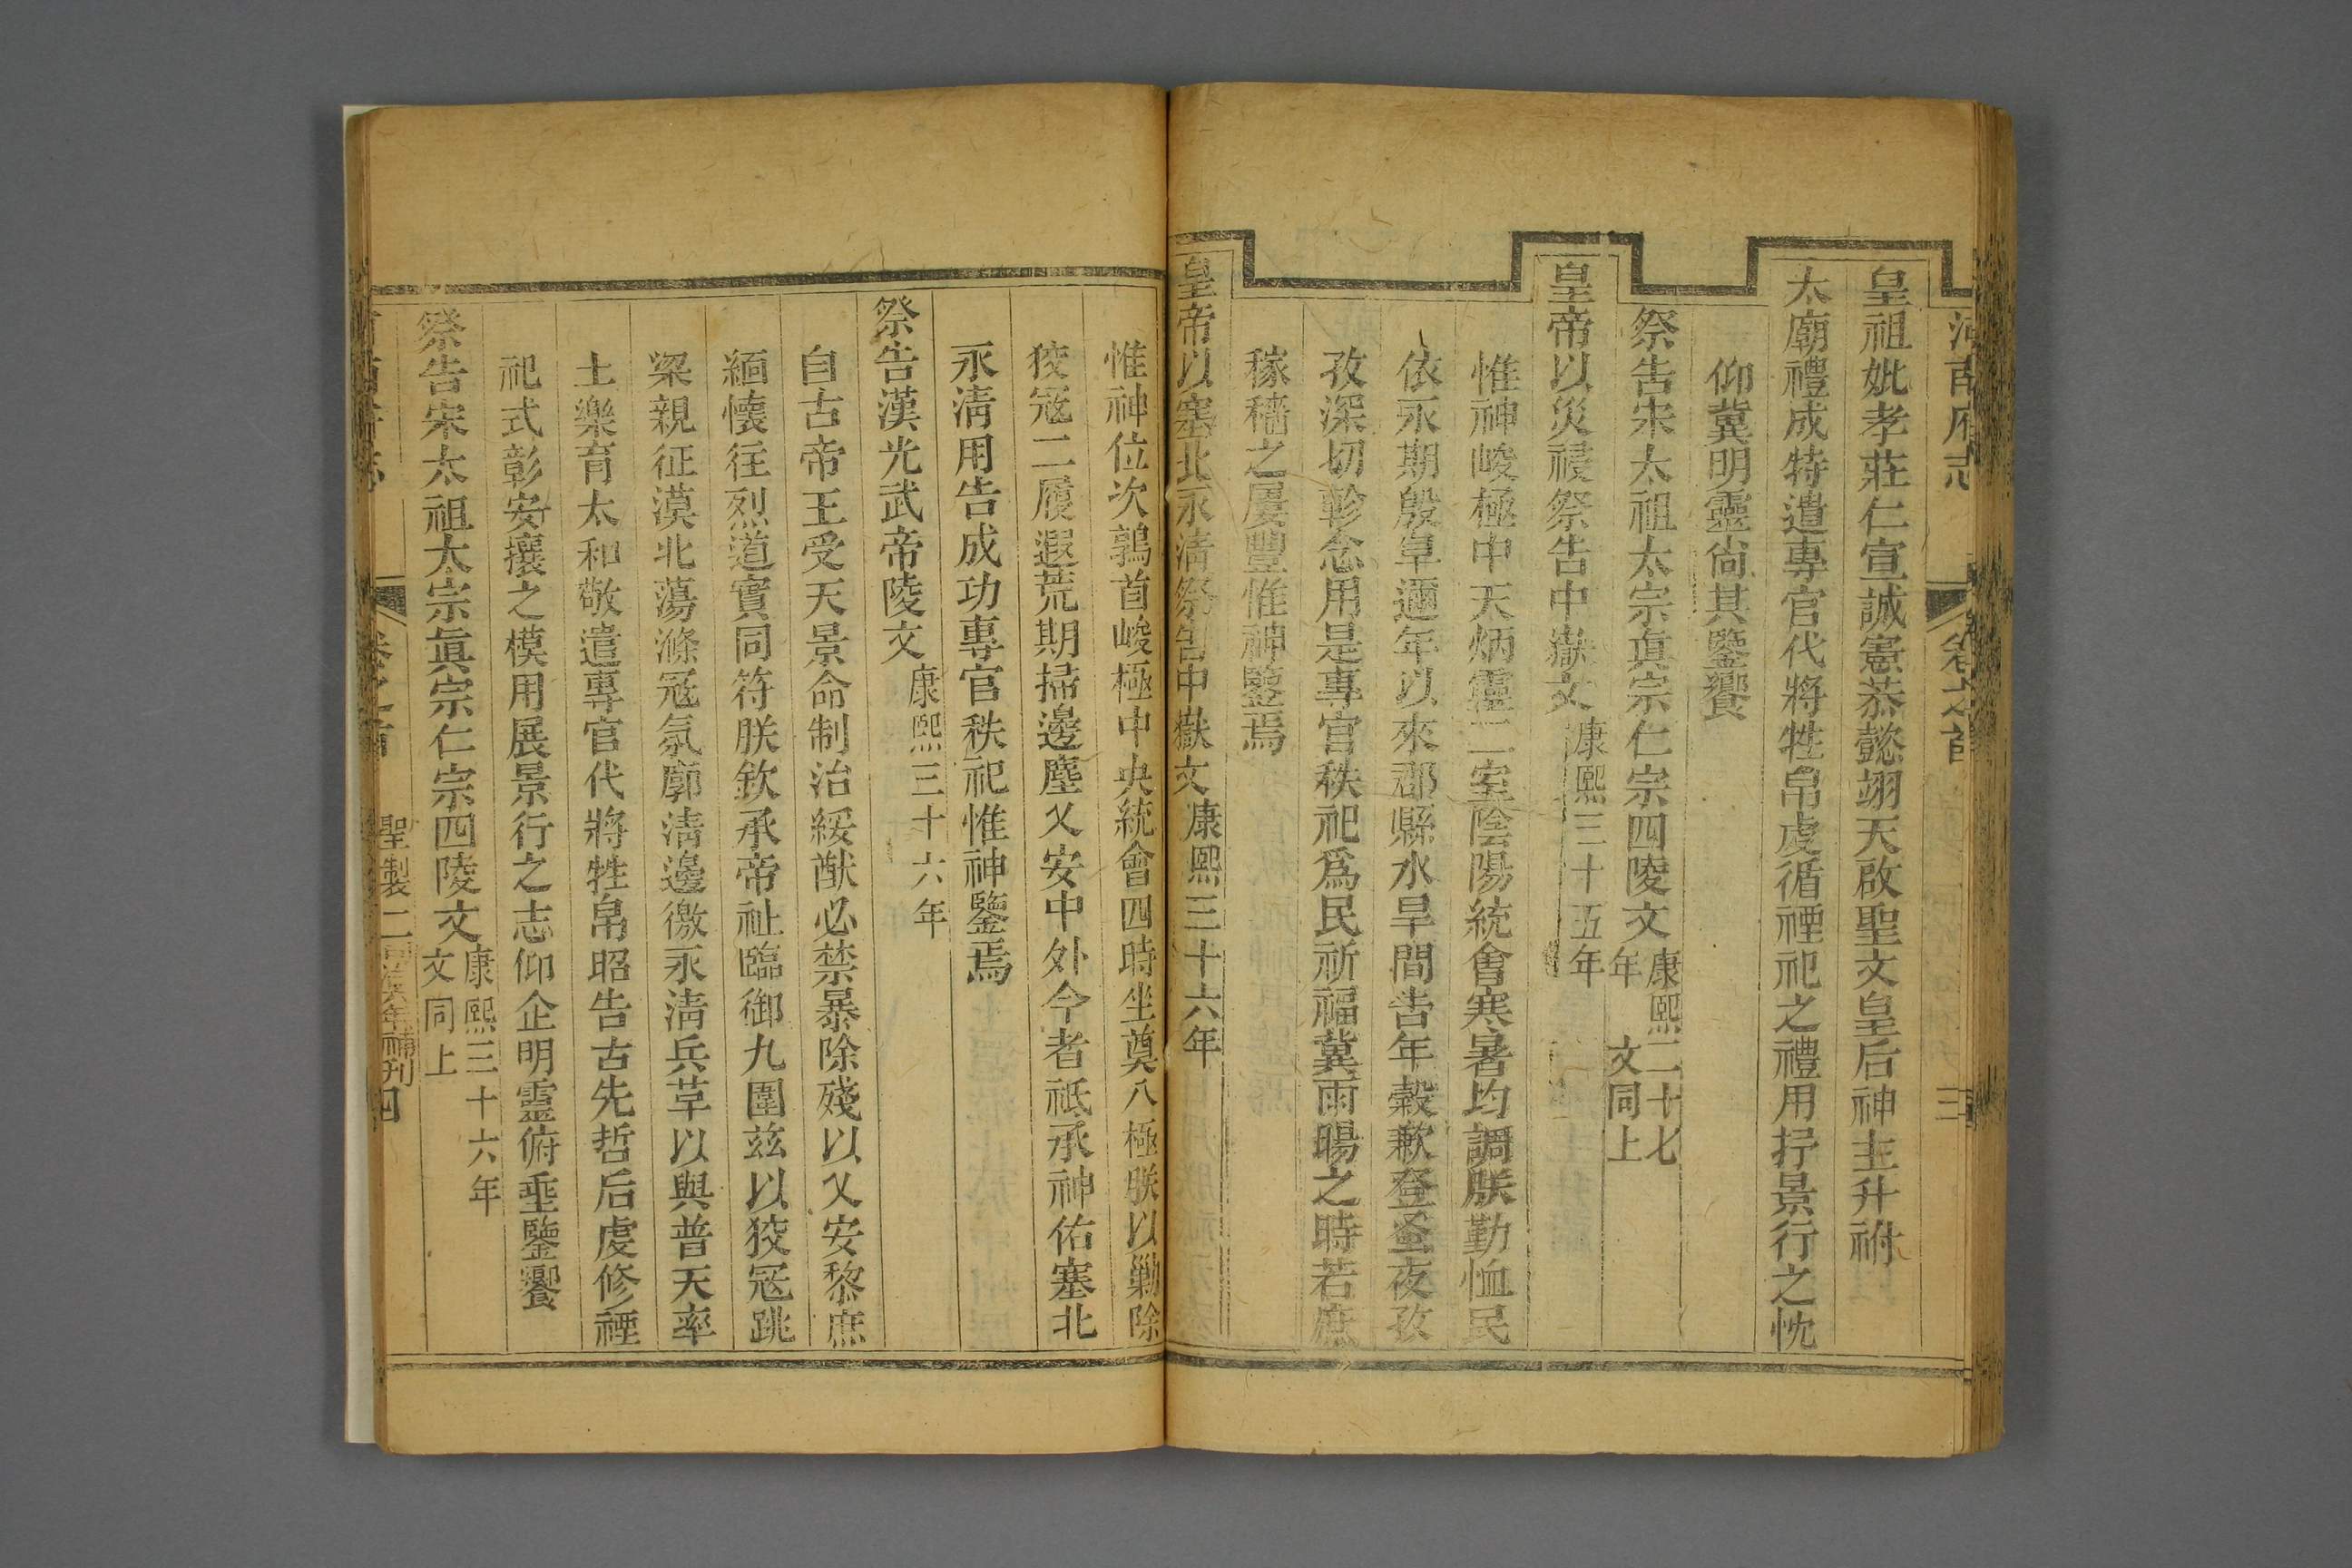 河南府志
卷之首
三
皇祖妣孝莊仁宣誠憲恭懿翊天啟聖文皇后神主升祔
太廟禮成特遣專官代將牲帛虔循禋祀之禮用抒景行之忱
仰冀明靈尙其鑒饗
祭告宋太祖太宗眞宗仁宗四陵文康熙二十七
年 文同上
皇帝以災祲祭告中嶽文康熙三十五年
惟神峻極中天炳靈二室陰陽統會寒暑均調朕勤恤民
依永期殷阜邇年以來郡縣水旱間告年穀歉登蚤夜孜
孜深切軫念用是專官秩祀爲民祈福冀雨暘之時若庶
稼穡之屢豐惟神鑒焉
皇帝以塞北永淸祭告中嶽文康熙三十六年
惟神位次鶉首峻極中央統會四時坐奠八極朕以勦除
狡寇二履遐荒期掃邊塵乂安中外今者祗承神佑塞北
永淸用告成功專官秩祀惟神鑒焉
祭告漢光武帝陵文康熙三十六年
自古帝王受天景命制治綏猷必禁暴除殘以乂安黎庶
緬懷往烈道實同符朕欽承帝祉臨御九圍茲以狡寇跳
梁親征漠北蕩滌寇氛廓淸邊徼永淸兵革以與普天率
土樂育太和敬遣專官代將牲帛昭告古先哲后虔修禋
祀式彰安攘之模用展景行之志仰企明靈俯垂鑒饗
祭告宋太祖太宗眞宗仁宗四陵文康熙三十六年
文同上
卷之首
聖製二
同治六年補刊
四